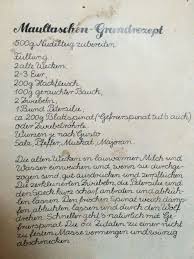 Maultaschen-Grundrezept
500g Nudelteig zubereiten
Füllung:
2 alte Wecken,
2-3 Eier,
200g Hackfleisch,
100g gerauchter Bauch,
2 Zwiebeln,
1 Bund Petersilie,
ca. 200g Blattspinat (Gefrierspinat tut's auch)
oder Zwiebelrohre
Würzen je nach Gusto
Salz, Pfeffer, Muskat, Majoran.
Die alten Wecken in lauwarmen Milch und
Wasser einweichen, wenn sie durchge-
zogen sind, gut ausdrücken und zerpflücken.
Die zerkleinerten Zwiebeln, die Petersilie und
den Speck kurz scharf anbraten und abküh-
len lassen. Den frischen Spinat weich dämp-
fen abkühlen lassen und durch den Wolf
drehen. Schneller geht's natürlich mit Ge-
frierspinat. Die Zutaten zu einer nicht
zu festen Masse vermengen und würzig
abschmecken